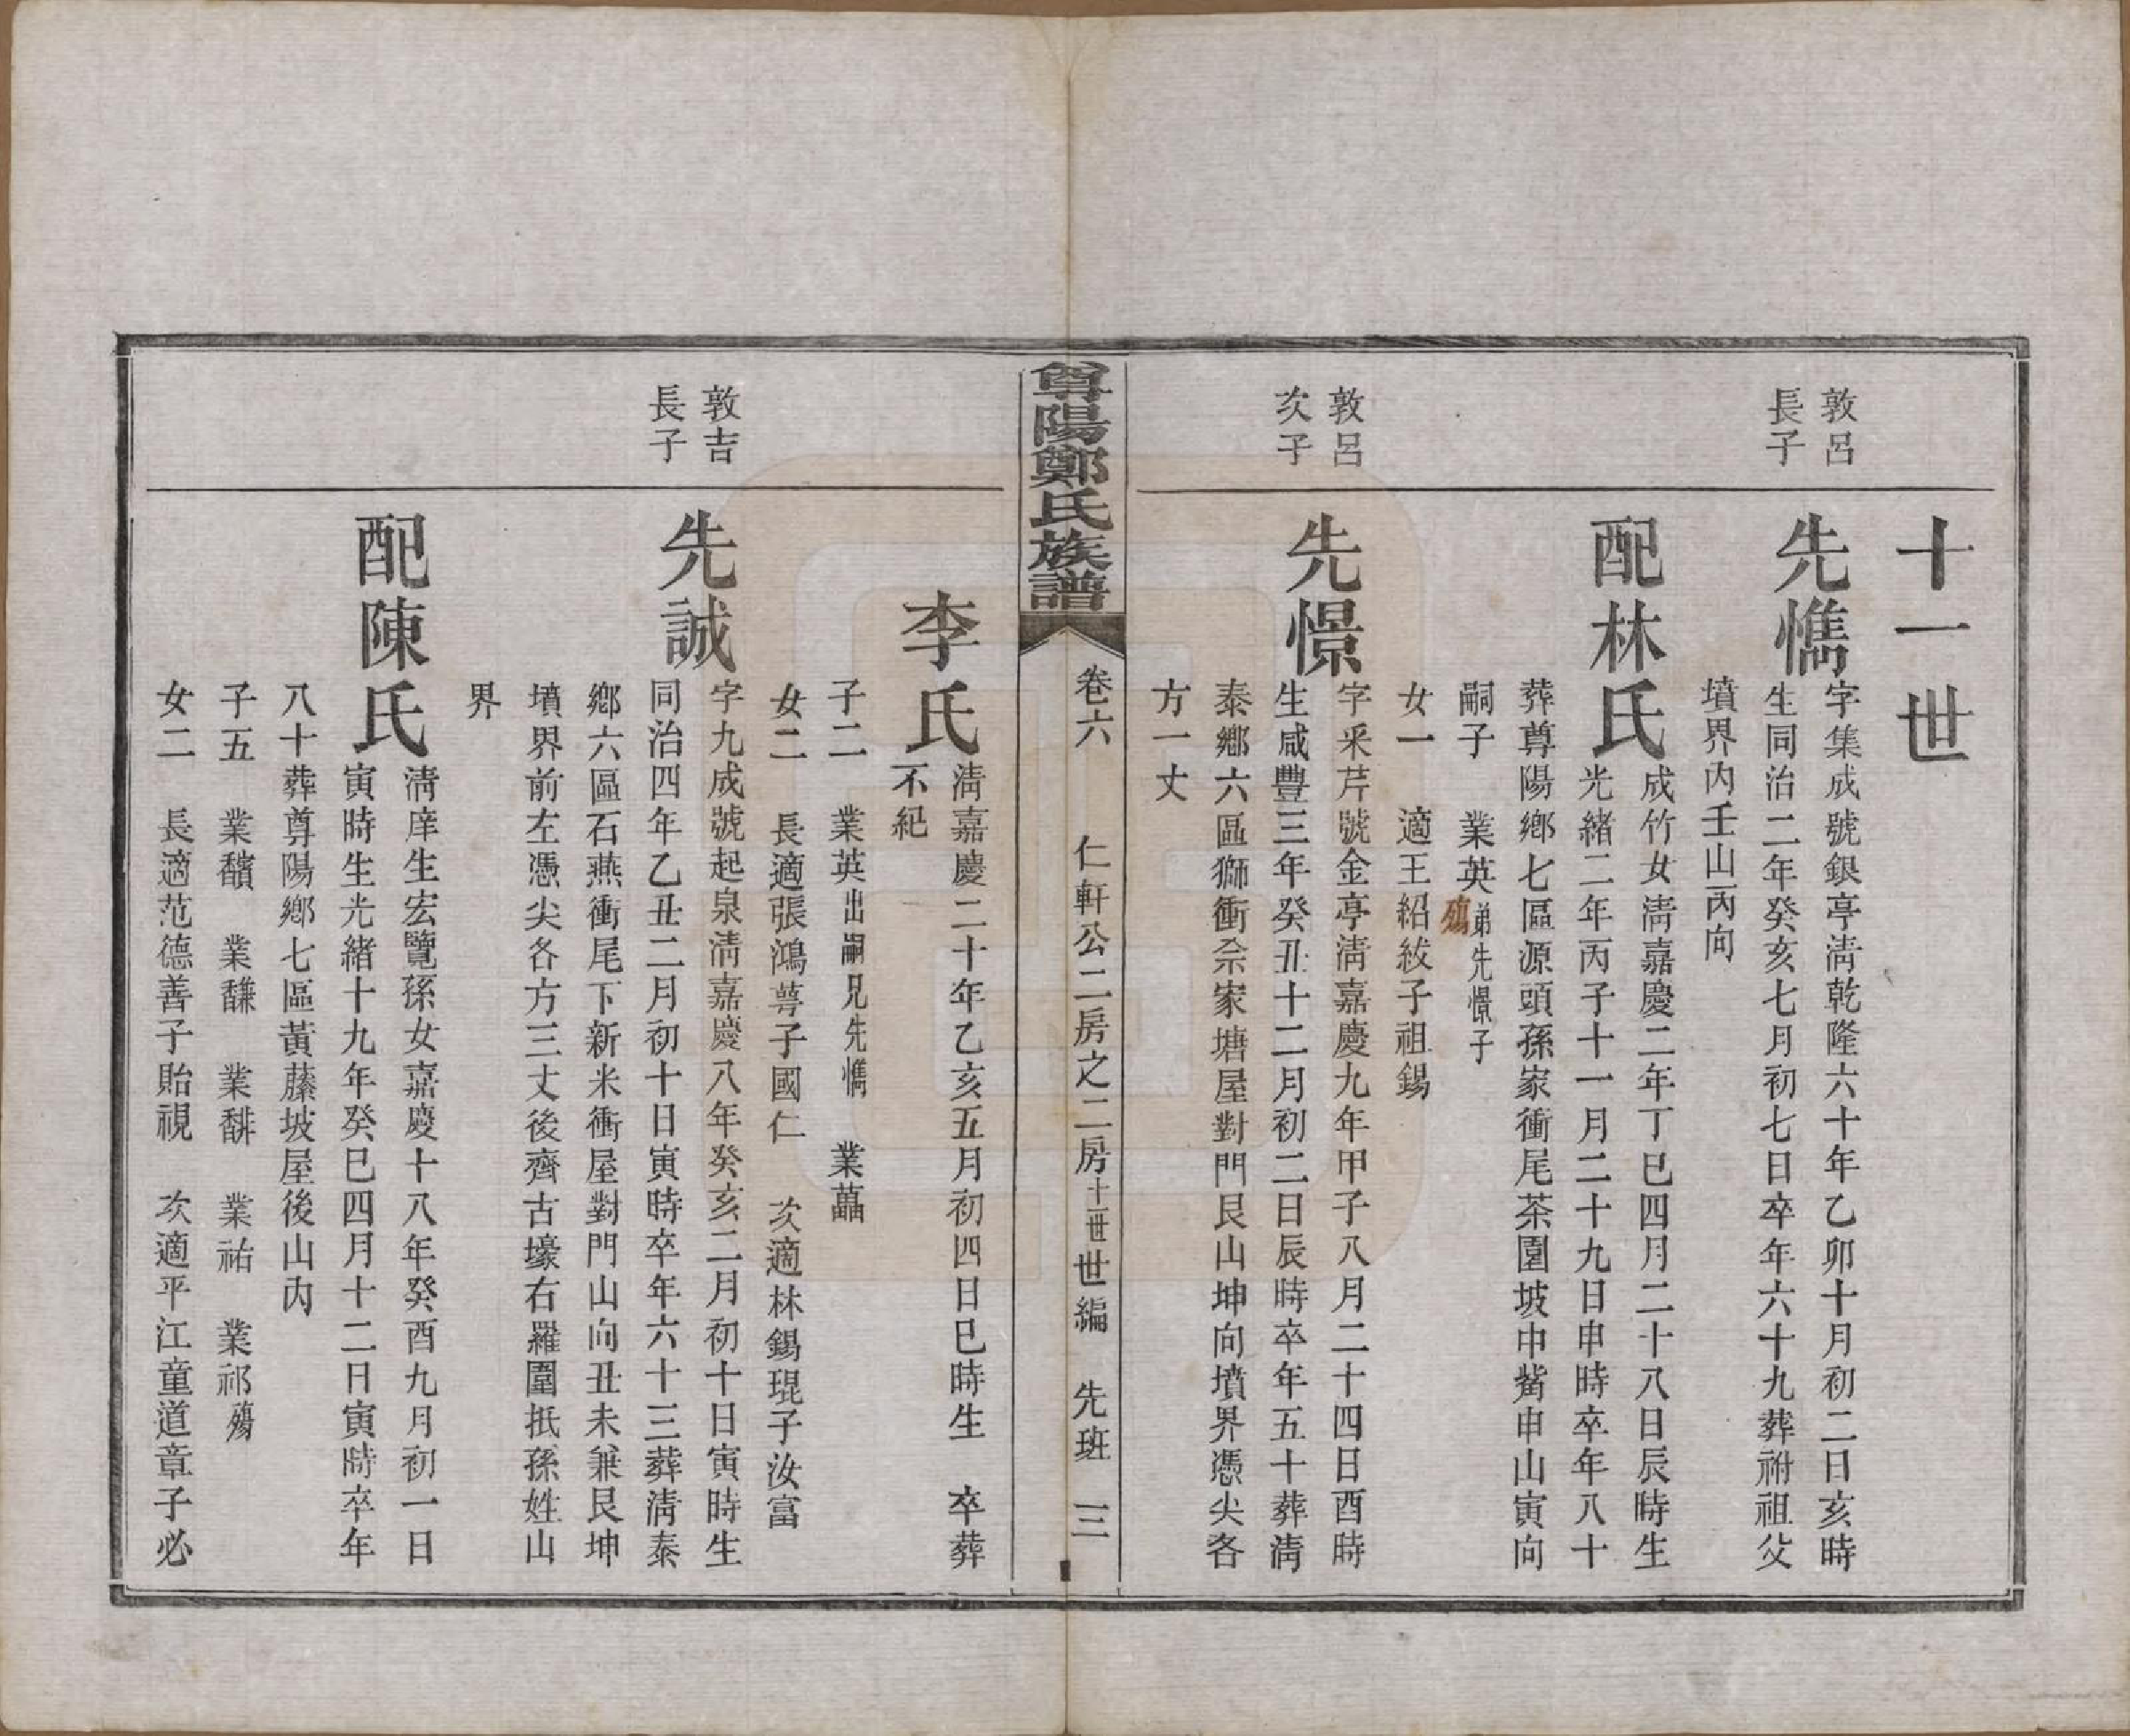 十一世
敦呂
長子
先㦎
字集成號銀亭淸乾隆六十年乙卯十月初二日亥時
生同治二年癸亥七月初七日卒年六十九葬祔祖父
墳界內壬山丙向
配林氏
成竹女淸嘉慶二年丁巳四月二十八日辰時生
光緒二年丙子十一月二十九日申時卒年八十
葬尊陽鄉七區源頭孫家衝尾茶園坡中嘴申山寅向
嗣子 業英弟先憬子
殤
女一 適王紹紱子祖錫
敦呂
次子
先憬
字釆芹號金亭淸嘉慶九年甲子八月二十四日酉時
生咸豐三年癸丑十二月初二日辰時卒年五十葬淸
泰鄉六區獅衝佘家塘屋對門艮山坤向墳界憑尖各
方一丈
尊陽鄭氏族譜
卷六 仁軒公二房之二房十一世世編 先班 三
李氏
淸嘉慶二十年乙亥五月初四日巳時生 卒葬
不紀
子二 業英出嗣兄先㦎 業藟
女二 長適張鴻萼子國仁 次適林錫琨子汝富
敦吉
長子
先誠
字九成號起泉淸嘉慶八年癸亥二月初十日寅時生
同治四年乙丑二月初十日寅時卒年六十三葬淸泰
鄉六區石燕衝尾下新米衝屋對門山向丑未兼艮坤
墳界前左憑尖各方三丈後齊古壕右羅圍抵孫姓山
界
配陳氏
淸庠生宏覽孫女嘉慶十八年癸酉九月初一日
寅時生光緒十九年癸巳四月十二日寅時卒年
八十葬尊陽鄉七區黃藤坡屋後山內
子五 業馪 業馦 業馡 業祐 業祁殤
女二 長適范德善子貽視 次適平江童道章子必